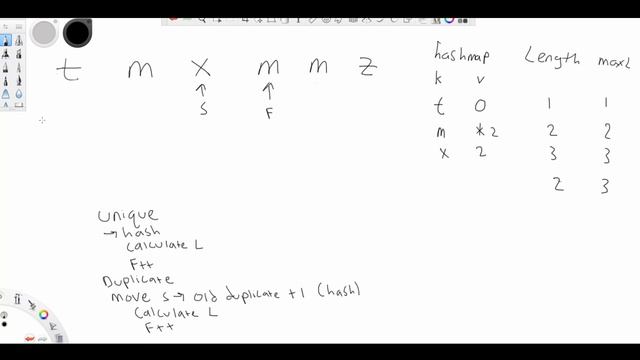 t m x m m z
S F
hashmap Length maxL
k v
t 0 1 1
m 2 2 2
x 2 3 3
2 3
Unique
→ hash
Calculate L
F++
Duplicate
move S → old duplicate +1 (hash)
Calculate L
F++